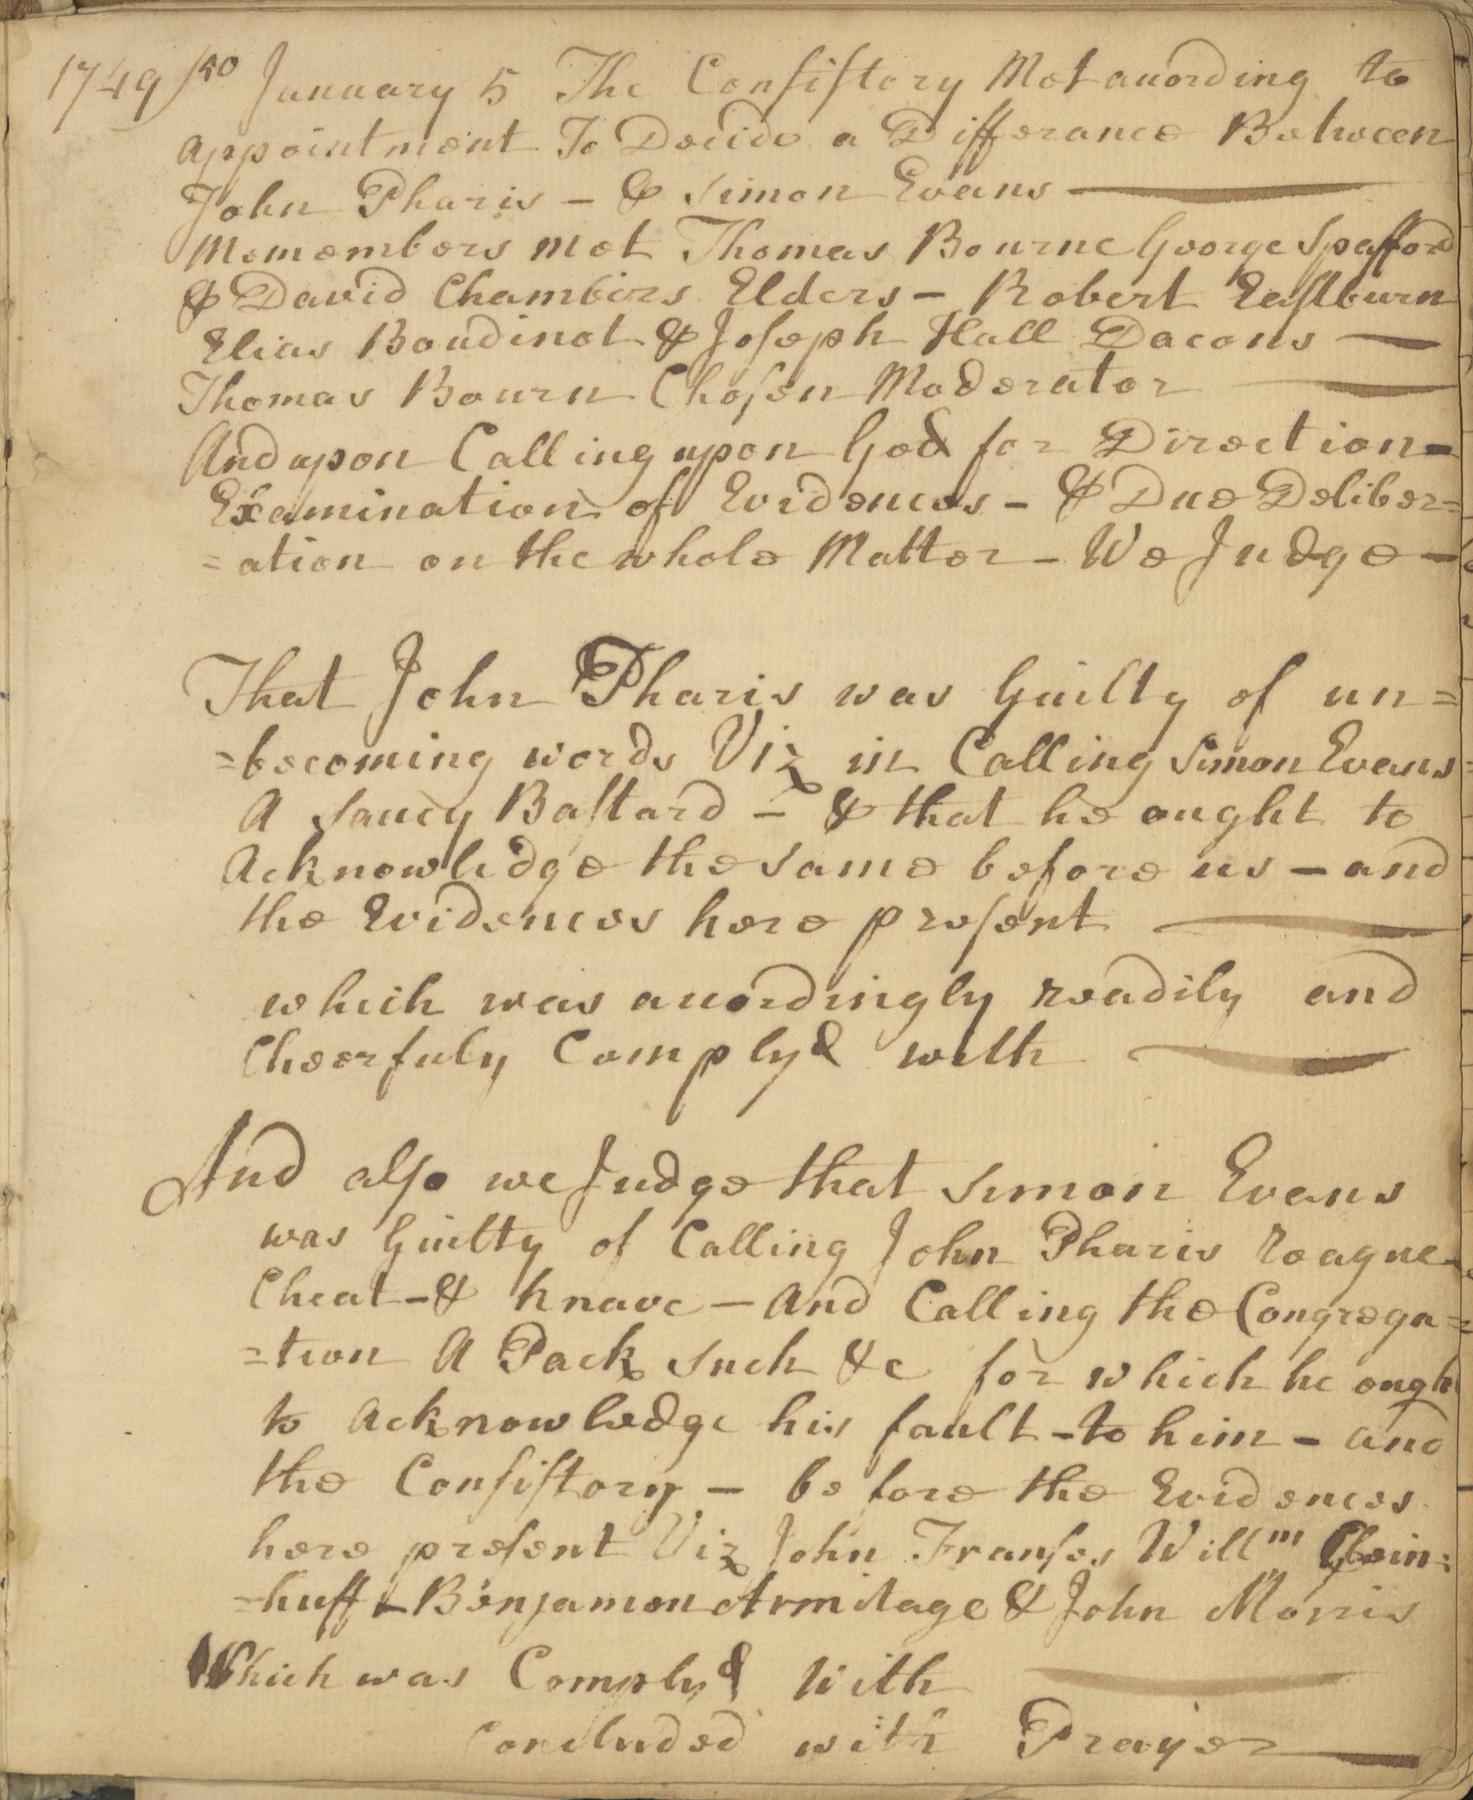 1749/50 January 5 The Consistory Met according to
appointment To Decide a Differance Between
John Pharis – & Simon Evans —
Memembers Met Thomas Bourne George Spafford
& David Chambers Elders – Robert Eastburn
Elias Boudinot & Joseph Hall Dacons —
Thomas Bourn Chosen Moderator —
And upon Calling upon God for Direction –
Examination of Evidences – & Due Deliber=
=ation on the whole Matter – We Judge –
That John Pharis was Guilty of un=
=becoming words Viz in Calling Simon Evans
A Saucy Bastard – & that he ought to
Acknowledge the same before us – and
the Evidences here present —
which was accordingly readily and
Cheerfuly Comply'd with —
And also we Judge that Simon Evans
was Guilty of Calling John Pharis Roague
Cheat – & Knave – And Calling the Congrega=
=tion A Pack Such &c for which he ought
to Acknowledge his fault – to him – and
the Consistory – before the Evidences
here present Viz John Franses Willm
=huff – Benjamen Armitage & John Morris
Which was Comply'd With —
Concluded with Prayer —